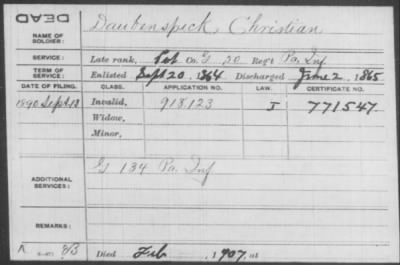 DEAD
NAME OF SOLDIER: Daubenspeck, Christian
SERVICE: Late rank, Co. G 20 Reg't Pa. Inf.
TERM OF SERVICE: Enlisted Sept 20, 1864, Discharged June 2, 1865
DATE OF FILING. CLASS. APPLICATION NO. LAW. CERTIFICATE NO.
1890 Sept 18 Invalid, 918,123 J 771547
Widow,
Minor,
ADDITIONAL SERVICES: G 134 Pa. Inf
REMARKS:
Died Feb, 1907, at